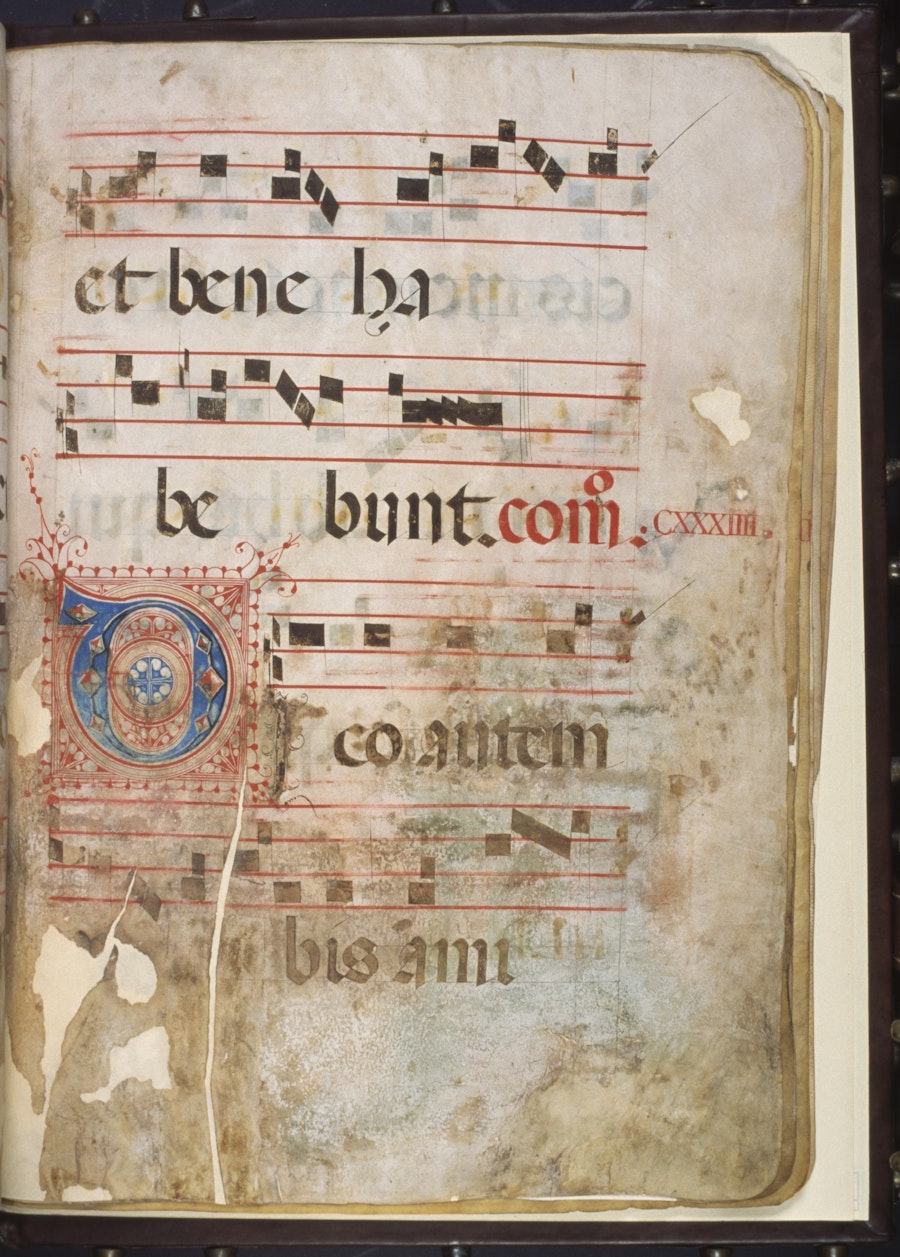 et bene ha
be bunt. com̄ : CXXXIIII .
Dico autem
bis ami